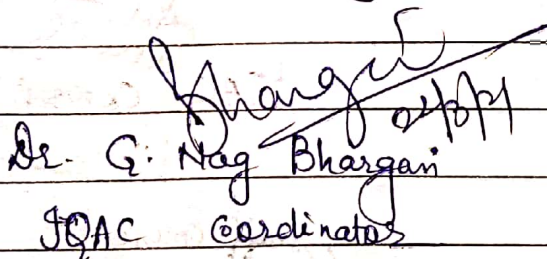 Bhargavi
02/8/21
Dr. G. Nag Bhargavi
IQAC Coordinator